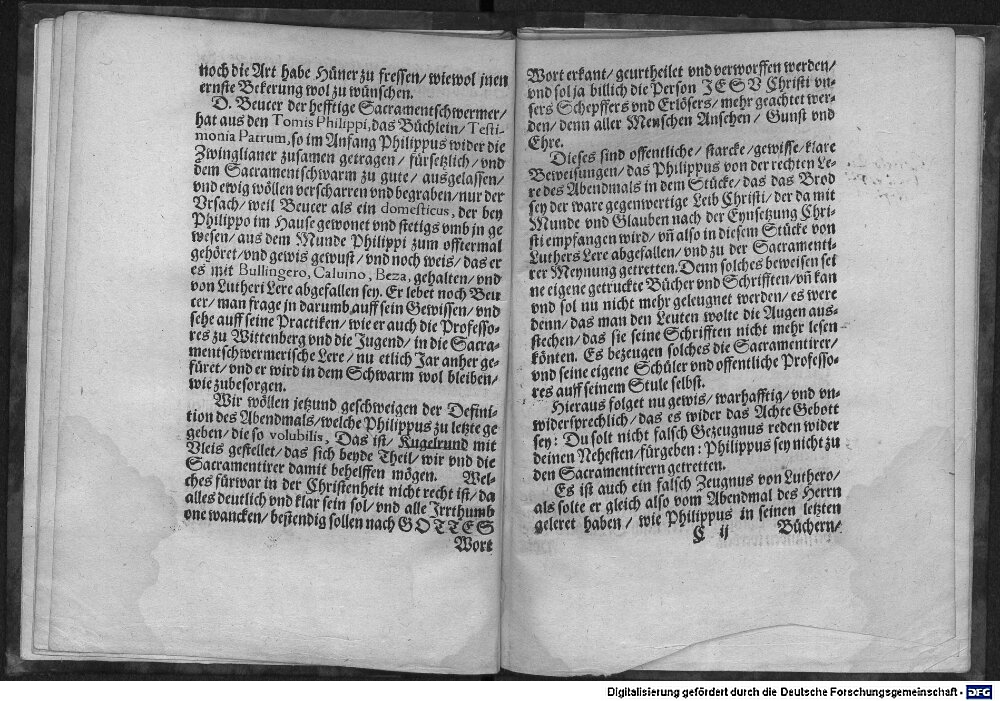 noch die Art habe Hüner zu fressen/ wiewol jnen
ernste Bekerung wol zu wünschen.
D. Beucer der hefftige Sacramentschwermer/
hat aus den Tomis Philippi, das Büchlein/ Testi-
monia Patrum, so im Anfang Philippus wider die
Zwinglianer zusamen getragen/ fürsetzlich/ vnd
dem Sacramentschwarm zu gute/ ausgelassen/
vnd ewig wöllen verscharren vnd begraben/ nur der
Vrsach/ weil Beucer als ein domesticus, der bey
Philippo im Hause gewonet vnd stetigs vmb jn ge
wesen/ aus dem Munde Philippi zum offtermal
gehöret/ vnd gewis gewust/ vnd noch weis/ das er
es mit Bullingero, Caluino, Beza, gehalten/ vnd
von Lutheri Lere abgefallen sey. Er lebet noch Beu
cer/ man frage jn darumb auff sein Gewissen/ vnd
sehe auff seine Practiken/ wie er auch die Professo-
res zu Wittenberg vnd die Jugend/ in die Sacra-
mentschwermerische Lere/ nu etlich Jar anher ge-
füret/ vnd er wird in dem Schwarm wol bleiben/
wie zubesorgen.
Wir wöllen jetzund geschweigen der Defini-
tion des Abendmals/ welche Philippus zu letzte ge
geben/ die so volubilis, Das ist/ Kugelrund mit
Vleis gestellet/ das sich beyde Theil/ wir vnd die
Sacramentirer damit behelffen mögen. Wel-
ches fürwar in der Christenheit nicht recht ist/ da
alles deutlich vnd klar sein sol/ vnd alle Irrthumb
one wancken/ bestendig sollen nach GOTTES
Wort
Wort erkant/ geurtheilet vnd verworffen werden/
vnd sol ja billich die Person JESV Christi vn-
sers Schepffers vnd Erlösers/ mehr geachtet wer-
den/ denn aller Menschen Ansehen/ Gunst vnd
Ehre.
Dieses sind offentliche/ starcke/ gewisse/ klare
Beweisungen/ das Philippus von der rechten Le-
re des Abendmals in dem Stücke/ das das Brod
sey der ware gegenwertige Leib Christi/ der da mit
Munde vnd Glauben nach der Eynsetzung Chri-
sti empfangen wird/ vñ also in diesem Stücke von
Luthers Lere abgefallen/ vnd zu der Sacramenti-
rer Meynung getretten. Denn solches beweisen sei
ne eigene getruckte Bücher vnd Schrifften/ vñ kan
vnd sol nu nicht mehr geleugnet werden/ es were
denn/ das man den Leuten wolte die Augen aus-
stechen/ das sie seine Schrifften nicht mehr lesen
könten. Es bezeugen solches die Sacramentirer/
vnd seine eigene Schüler vnd offentliche Professo-
res auff seinem Stule selbst.
Hieraus folget nu gewis/ warhafftig/ vnd vn-
widersprechlich/ das es wider das Achte Gebott
sey: Du solt nicht falsch Gezeugnus reden wider
deinen Nehesten/ fürgeben: Philippus sey nicht zu
den Sacramentirern getretten.
Es ist auch ein falsch Zeugnus von Luthero/
als solte er gleich also vom Abendmal des Herrn
geleret haben/ wie Philippus in seinen letzten
C ij Büchern/
Digitalisierung gefördert durch die Deutsche Forschungsgemeinschaft - DFG